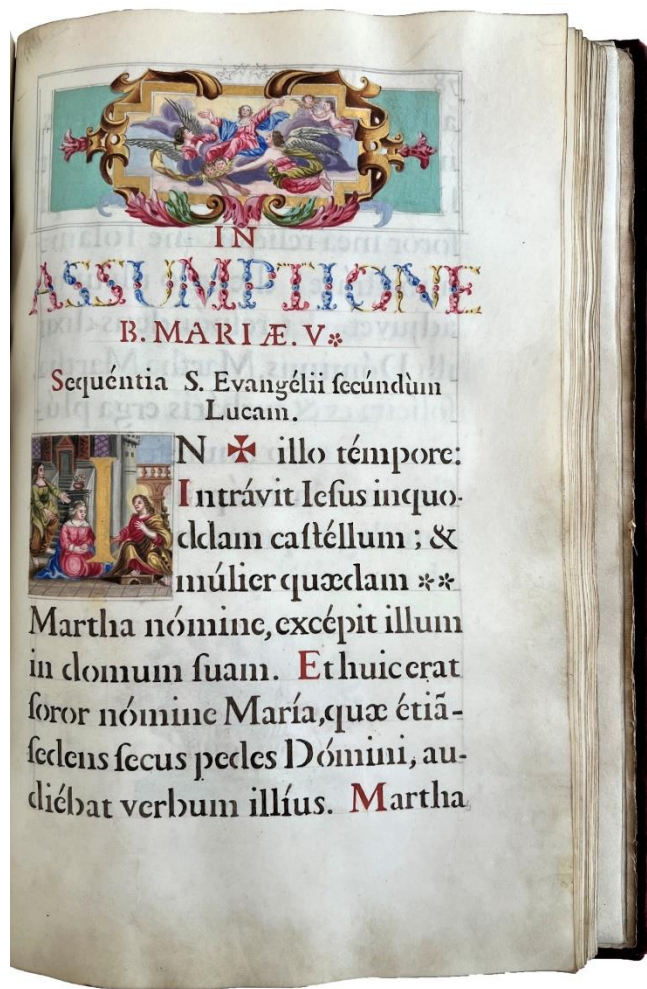 IN
ASSUMPTIONE
B. MARIÆ. V
Sequéntia S. Evangélii ſecúndùm
Lucam.
IN ✠ illo témpore:
Intrávit Ieſus inquo-
ddam caſtéllum ; &
múlier quædam **
Martha nómine, excépit illum
in domum ſuam. Et huic erat
ſoror nómine María, quæ étiã-
ſedens ſecus pedes Dómini, au-
diébat verbum illíus. Martha